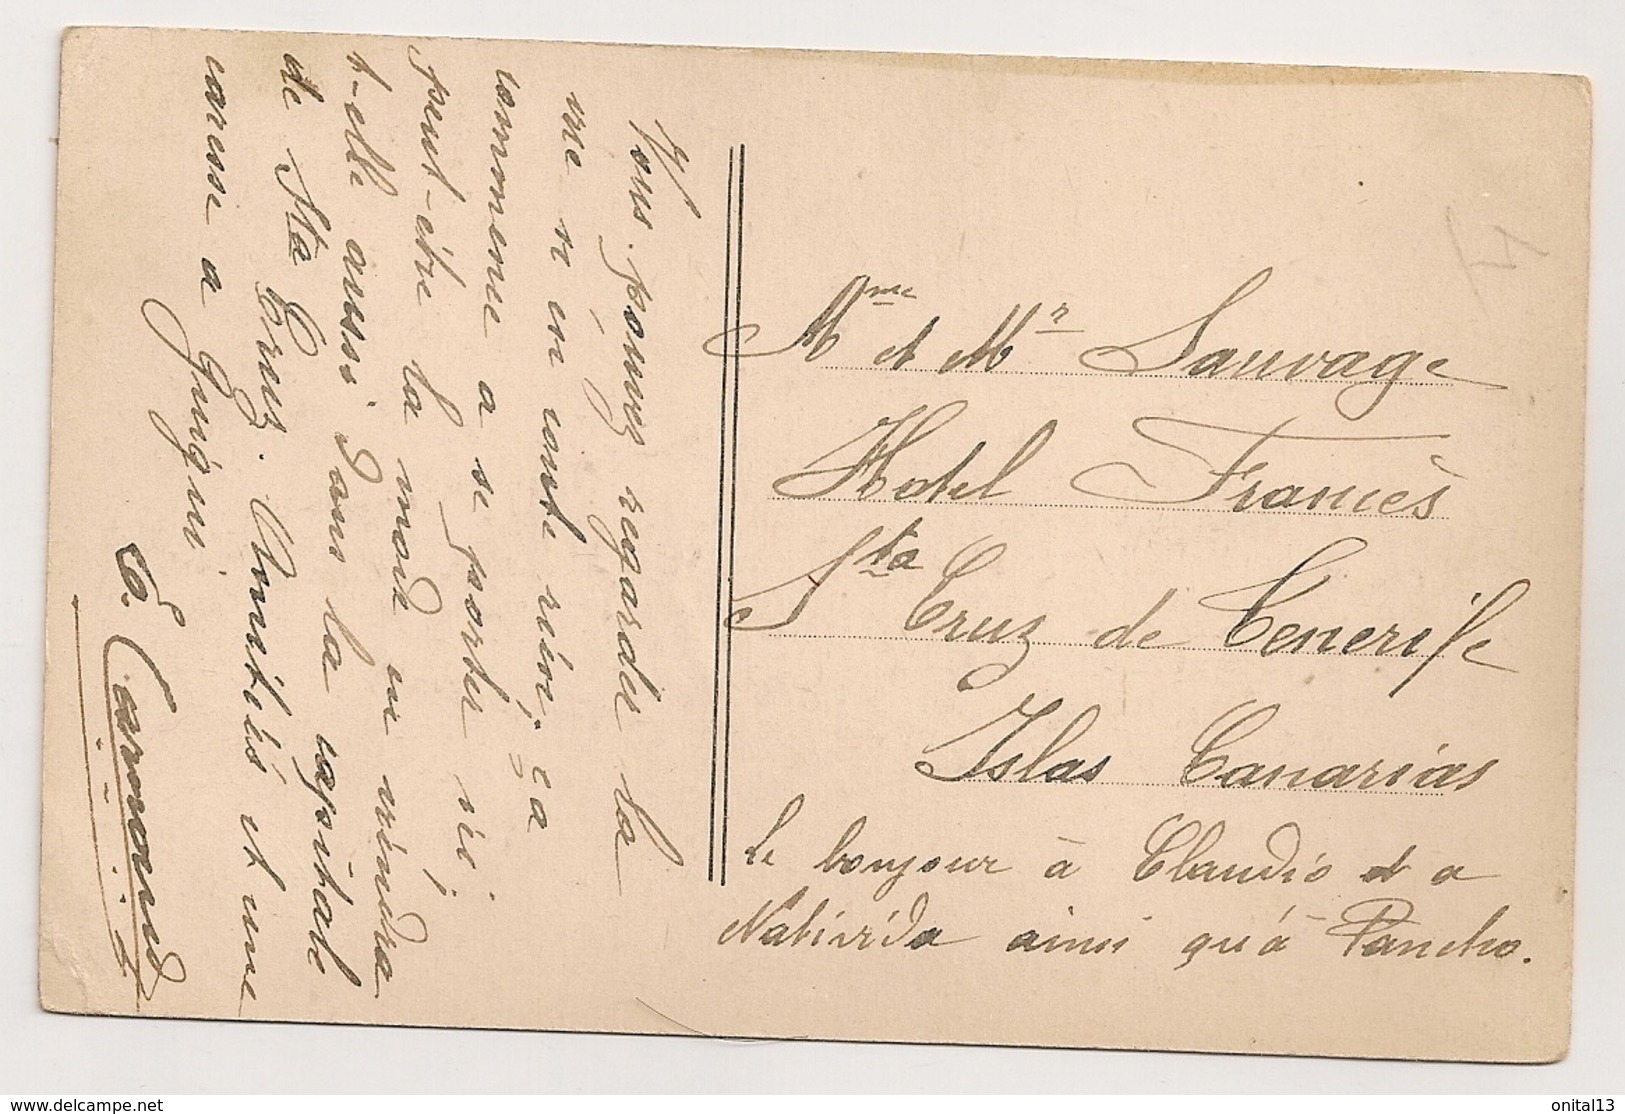 Vous pouvez regarder la
vue n'en coute rien, ça
commence a se porter ici,
peut-être la mode en viendra
t-elle aussi dans la capitale
de Sta Cruz. Amitiés et une
caresse a Guigui.
E. Carmand
Mme et Mr Sauvage
Hotel Francès
Sta Cruz de Tenerife
Islas Canarias
Le bonjour à Claudio et a
Nativida ainsi qu'à Pancho.
delcampe.net
onital13